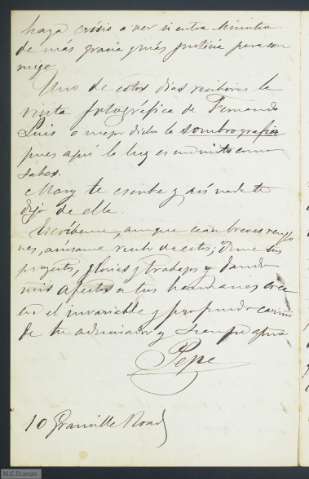 haya crisis a ver si entra Ministro
de más gracia y más justicia para con
migo.
Uno de estos dias recibirás la
visita fotográfica de Fernando
Luis o mejor dicho la sombrografia
pues aquí la luz es un mito como
sabes.
Mary te escribe y así nada te
digo de ella.
Escribeme, aunque sean breves renglo
nes, avisame recibo de estos; Dime tus
proyectos, glorias y trabajos y dando
mis afectos a tus hermanas cree
en el invariable y profundo cariño
de tu admirador y siempre amo
Pepe
10 Granville Road